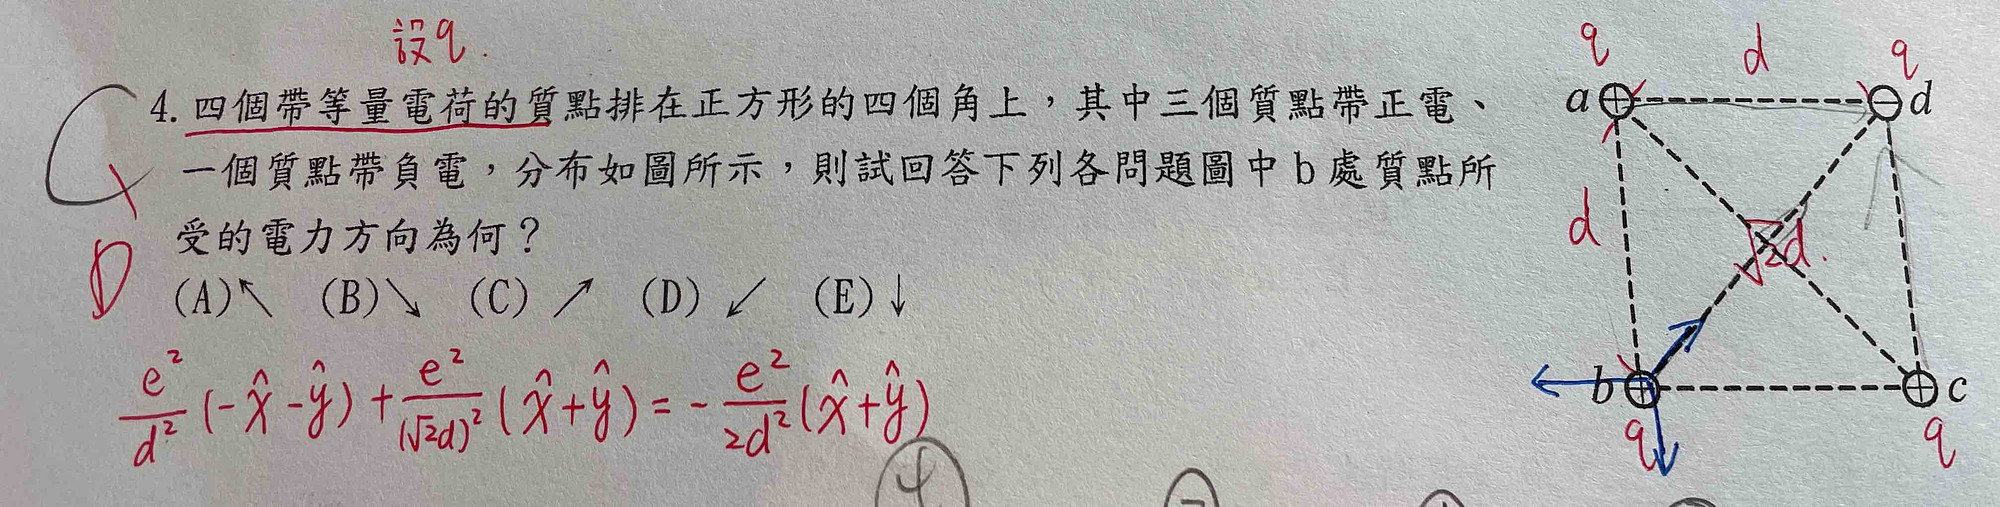 設q.
4. 四個帶等量電荷的質點排在正方形的四個角上，其中三個質點帶正電、
一個質點帶負電，分布如圖所示，則試回答下列各問題圖中 b 處質點所
受的電力方向為何？
(A)↖ (B)↘ (C) ↗ (D) ↙ (E)↓
C
D
e²/d² (-x̂-ŷ) + e²/(√2d)² (x̂+ŷ) = - e²/2d² (x̂+ŷ)
q d q
a ⊕ ⊖ d
d √2d.
b ⊕ ⊕ c
q q